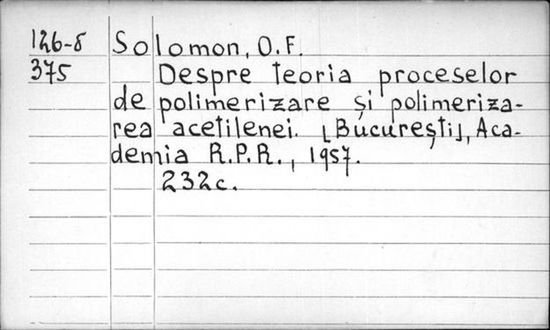 126-8 Solomon, O.F.
375 Despre teoria proceselor
de polimerizare și polimeriza-
rea acetilenei. [București], Aca-
demia R.P.R., 1957.
232c.